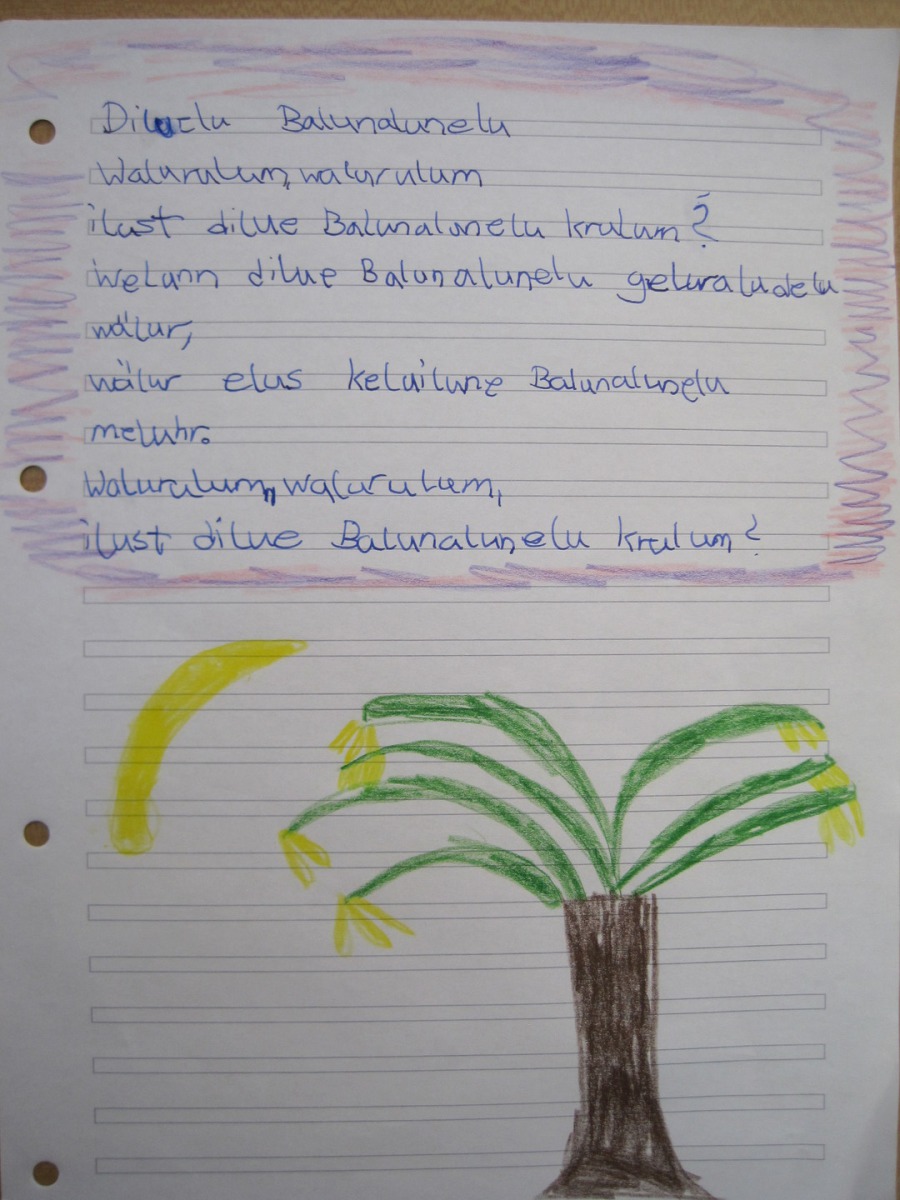 Diluelu Balunalunelu
Walurulum, walurulum
ilust dilue Balunalunelu krulum?
Welunn dilue Balunalunelu geluraludelu
wälur,
wälur elus keluilune Balunalunelu
meluhr.
Walurulum, walurulum,
ilust dilue Balunalunelu krulum?